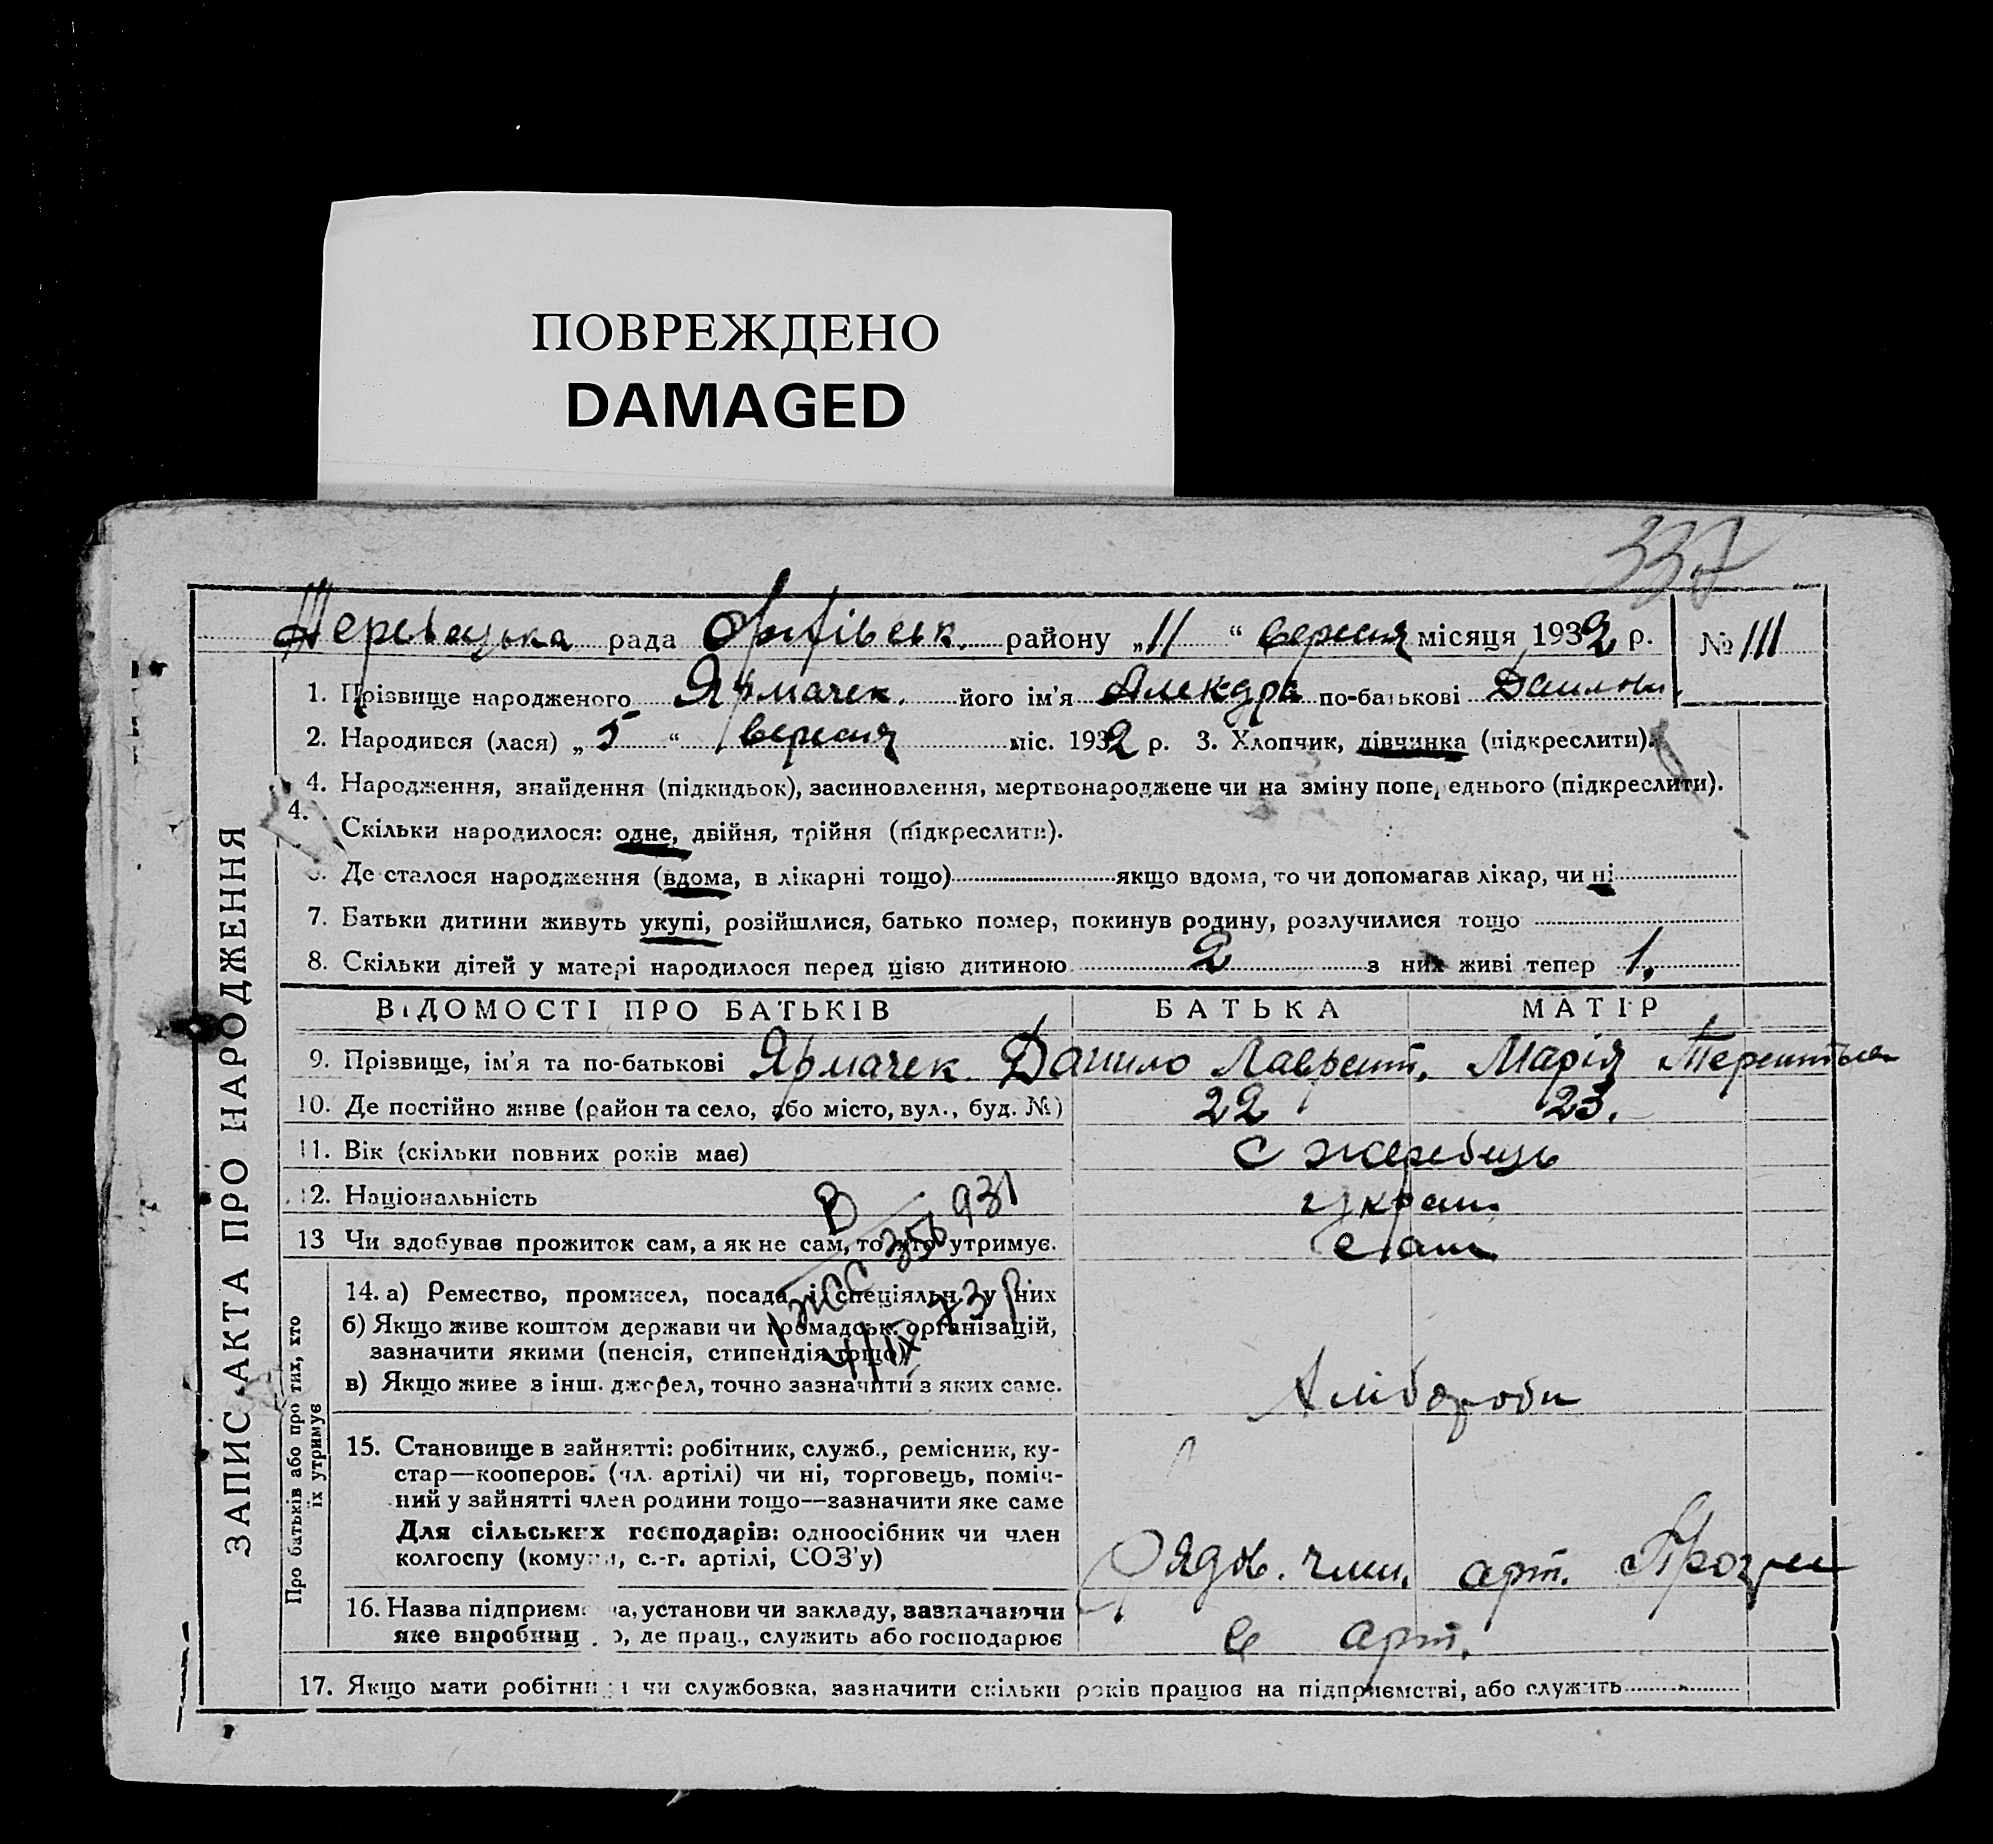 ПОВРЕЖДЕНО
DAMAGED
337
рада районy „11“ вересня місяця 1932 р. № 111
1. Прізвище народженого Ярмачек. його ім'я Алекдра по-батькові Данилови.
2. Народився (лася) „5“ вересня міс. 1932 р. 3. Хлопчик, дівчинка (підкреслити).
4. Народження, знайдення (підкидьок), засиновлення, мертвонароджене чи на зміну попе еднього (підкреслити).
4.
Скільки народилося: одне, двійня, трійня (підкреслити).
Де сталося народження (вдома, в лікарні тощо) якщо вдома, то чи допомагав лікар, чи ні
7. Батьки дитини живуть укупі, розійшлися, батько помер, покинув родину, розлучилися тощо
8. Скільки дітей у матері народилося перед цією дитиною 2 з них живі тепер 1.
ЗАПИС АКТА ПРО НАРОДЖЕННЯ
ВІДОМОСТІ ПРО БАТЬКІВ БАТЬКА МАТІР
9. Прізвище, ім'я та по-батькові Ярмачек Данило Лаврент. Марія
10. Де постійно живе (район та село, або місто, вул., буд. №) 22 23.
11. Вік (скільки повних років має) с жеребець
12. Національність Украин
13 Чи здобуває прожиток сам, а як не сам, то хто утримує. сами
Про батьків або про тих, хто їх утримує
14. а) Ремество, промисел, посада і спеціяльн. у них
б) Якщо живе коштом держави чи громадськ. організацій,
зазначити якими (пенсія, стипендія тощо)
в) Якщо живе з інш. джерел, точно зазначити з яких саме. хлібороби
15. Становище в зайнятті: робітник, служб., ремісник, ку-
стар—кооперов. (чл. артілі) чи ні, торговець, поміч-
ний у зайнятті член родини тощо—зазначити яке саме
Для сільських господарів: одноосібник чи член
колгоспу (комуни, с.-г. артілі, СОЗ'у) рядов. член. арт.
16. Назва підприєм ва, установи чи закладу, зазначаючи
яке виробниц о, де прац., служить або господарює в арт.
17. Якщо мати робітниця чи службовка, зазначити скільки років працює на підприємстві, або служить